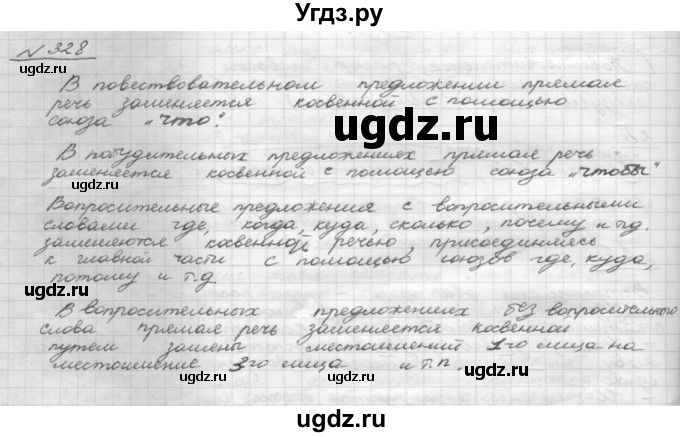 Угдз.ру
N 328
В повествовательном предложении прямая
речь заменяется косвенной с помощью
союза "что".
В побудительных предложениях прямая речь
заменяется косвенной с помощью союза "чтобы"
Вопросительные предложения с вопросительными
словами где, когда, куда, сколько, почему и т.д.
заменяются косвенной речью, присоединяясь
к главной части с помощью союзов где, куда,
потому и т.д
В вопросительных предложениях без вопросительного
слова прямая речь заменяется косвенной
путем замены местоимений 1-го лица на
местоимение 3-го лица и т.п.
ugdz.ru
ugdz.ru
ugdz.ru
ugdz.ru
ugdz.ru
ugdz.ru
ugdz.ru
ugdz.ru
ugdz.ru
ugdz.ru
ugdz.ru